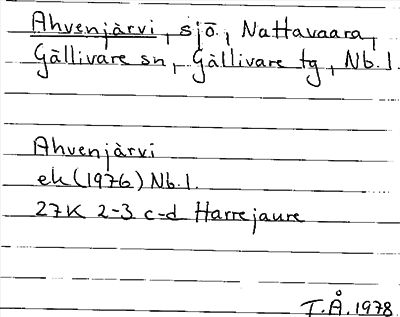 Ahvenjärvi, sjö, Nattavaara,
Gällivare sn, Gällivare tg, Nb.l.
Ahvenjärvi
ek (1976) Nb.l.
27K 2-3 c-d Harrejaure
T.Å. 1978